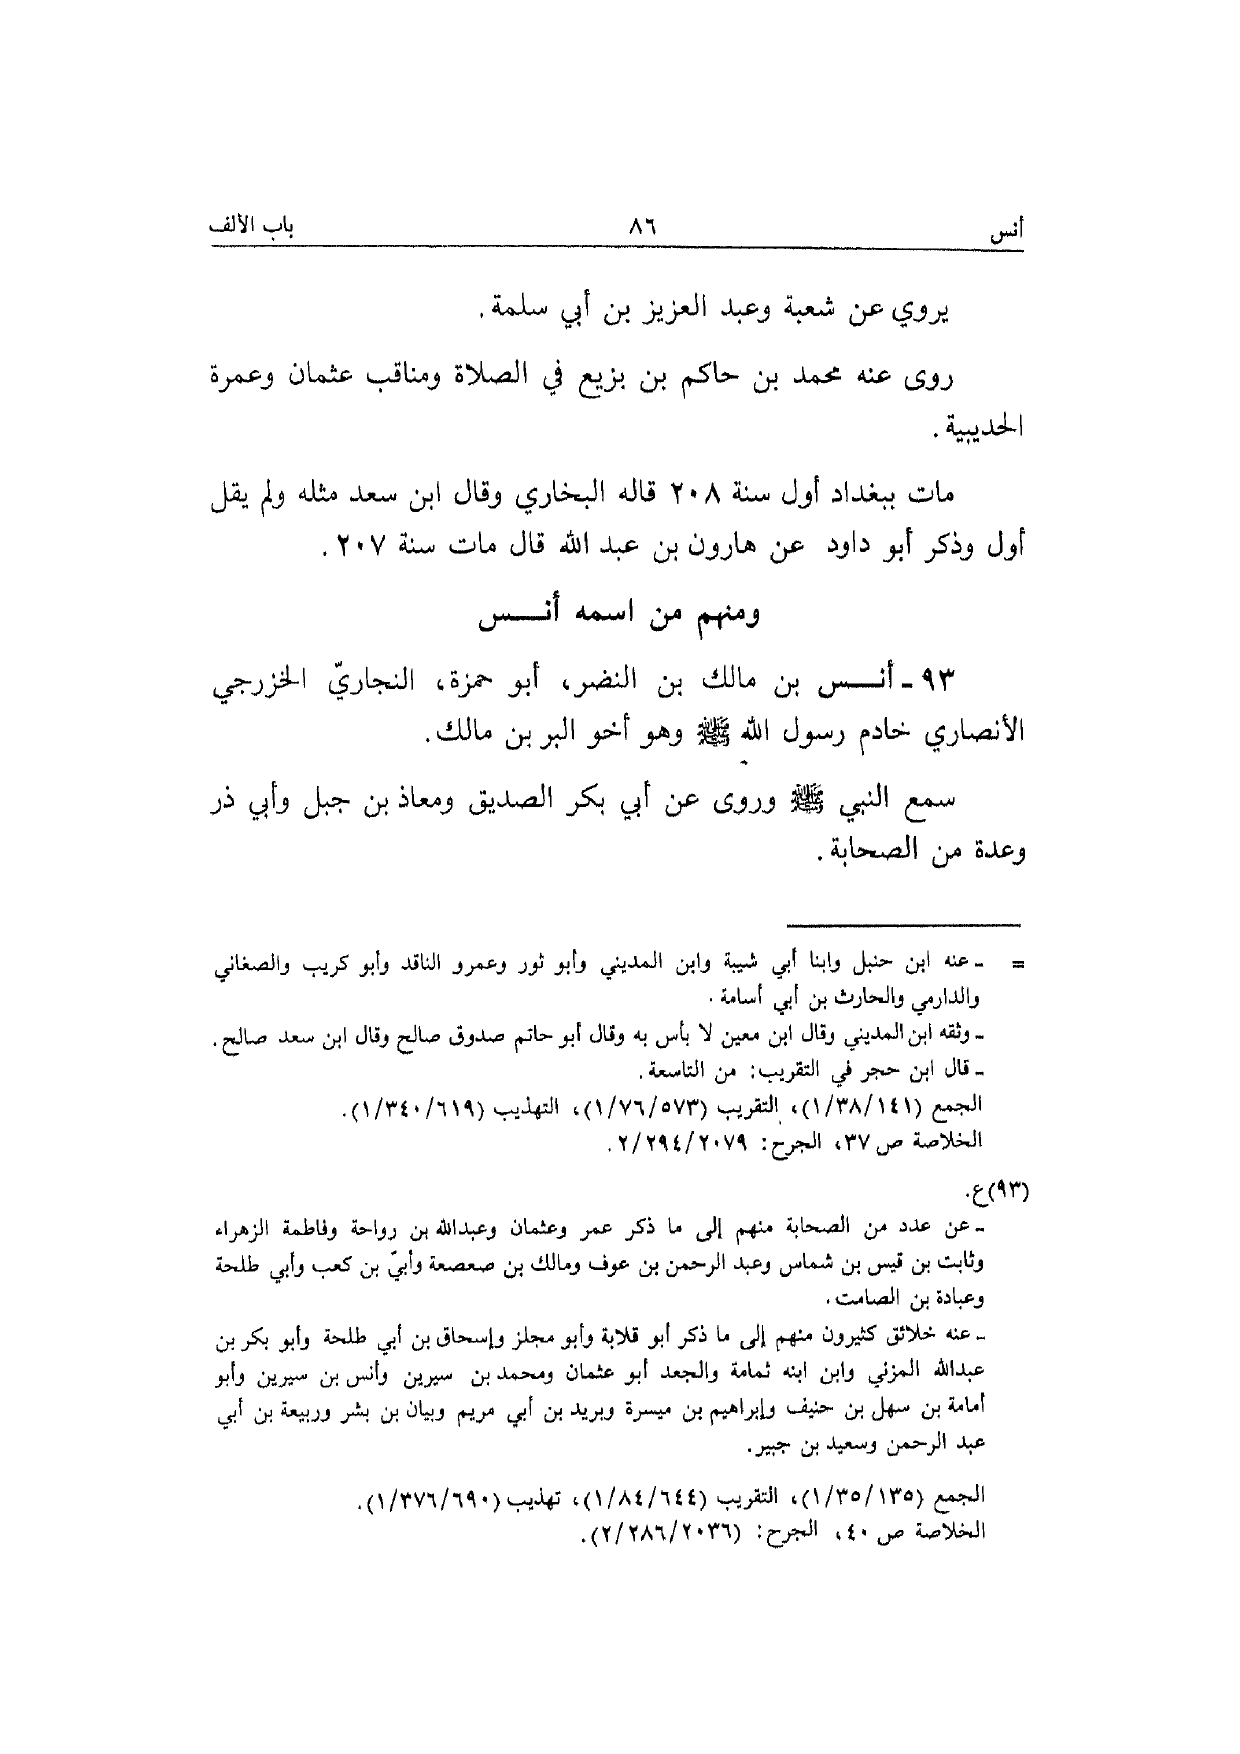 أنس ٨٦ باب الألف
يروي عن شعبة وعبد العزيز بن أبي سلمة.
روى عنه محمد بن حاكم بن بزيع في الصلاة ومناقب عثمان وعمرة
الحديبية.
مات ببغداد أول سنة ٢٠٨ قاله البخاري وقال ابن سعد مثله ولم يقل
أول وذكر أبو داود عن هارون بن عبد الله قال مات سنة ٢٠٧.
ومنهم من اسمه أنـــس
٩٣ - أنـــس بن مالك بن النضر، أبو حمزة، النجاريّ الخزرجي
الأنصاري خادم رسول الله ﷺ وهو أخو البر بن مالك.
سمع النبي ﷺ وروى عن أبي بكر الصديق ومعاذ بن جبل وأبي ذر
وعدة من الصحابة.
= - عنه ابن حنبل وابنا أبي شيبة وابن المديني وأبو ثور وعمرو الناقد وأبو كريب والصغاني
والدارمي والحارث بن أبي أسامة.
- وثقه ابن المديني وقال ابن معين لا بأس به وقال أبو حاتم صدوق صالح وقال ابن سعد صالح.
- قال ابن حجر في التقريب: من التاسعة.
الجمع (١/٣٨/١٤١)، التقريب (١/٧٦/٥٧٣)، التهذيب (١/٣٤٠/٦١٩).
الخلاصة ص ٣٧، الجرح: ٢/٢٩٤/٢٠٧٩.
(٩٣) ع.
- عن عدد من الصحابة منهم إلى ما ذكر عمر وعثمان وعبدالله بن رواحة وفاطمة الزهراء
وثابت بن قيس بن شماس وعبد الرحمن بن عوف ومالك بن صعصعة وأبيّ بن كعب وأبي طلحة
وعبادة بن الصامت.
- عنه خلائق كثيرون منهم إلى ما ذكر أبو قلابة وأبو مجلز وإسحاق بن أبي طلحة وأبو بكر بن
عبدالله المزني وابن ابنه ثمامة والجعد أبو عثمان ومحمد بن سيرين وأنس بن سيرين وأبو
أمامة بن سهل بن حنيف وإبراهيم بن ميسرة وبريد بن أبي مريم وبيان بن بشر وربيعة بن أبي
عبد الرحمن وسعيد بن جبير.
الجمع (١/٣٥/١٣٥)، التقريب (١/٨٤/٦٤٤)، تهذيب (١/٣٧٦/٦٩٠).
الخلاصة ص ٤٠، الجرح: (٢/٢٨٦/٢٠٣٦).